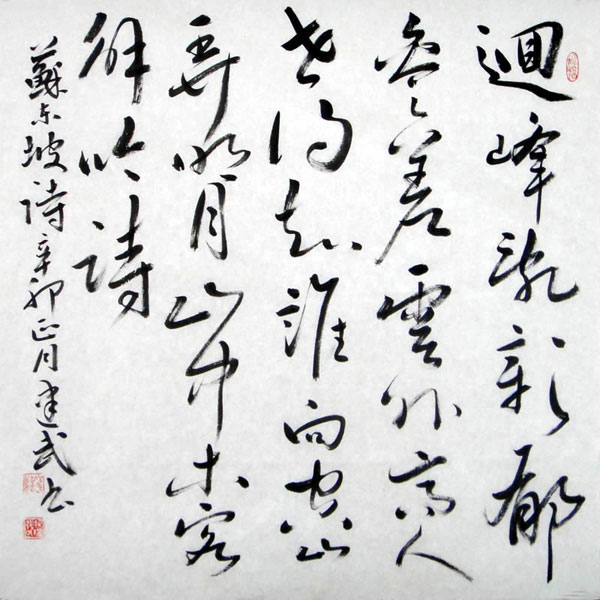 迴峰亂彰郁
参差雲外高人
世得知誰向空山
弄明月山中木客
解吟詩
蘇东坡詩辛卯正月建武书